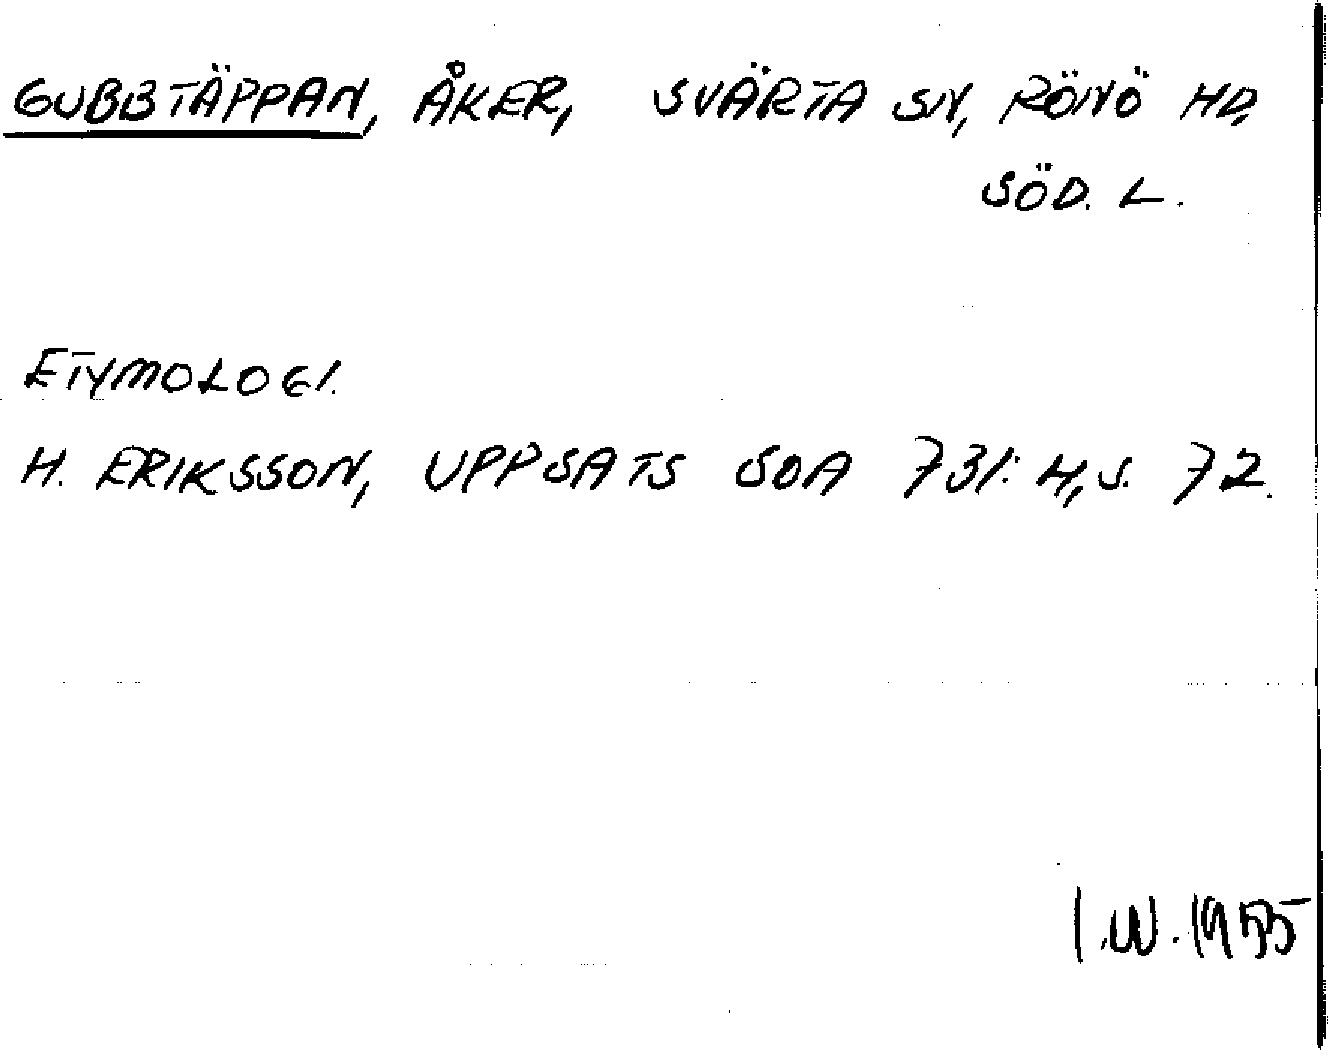 GUBBTÄPPAN, ÅKER, SVÄRTA SN, RÖNÖ HD,
SÖD. L.
ETYMOLOGI.
H. ERIKSSON, UPPSATS SOA 731:4, S. 72.
I.W. 1955